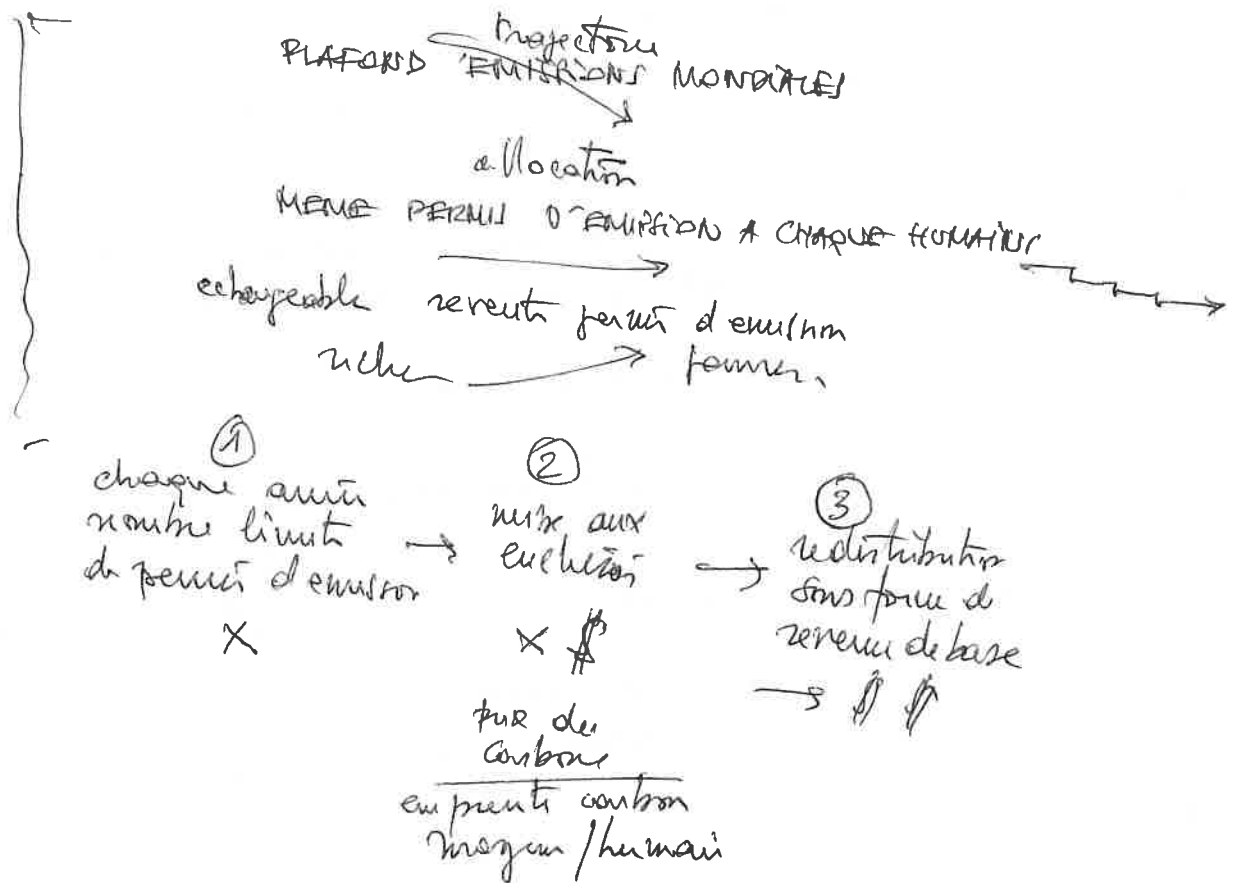 trajectoire
PLAFOND D'EMISSIONS MONDIALES
allocation
MEME PERMIS D'EMISSION A CHAQUE HUMAINS
echangeable revente permis d emission
riches pauvres
①
chaque année
nombre limité
de permis d'emission
X
②
mise aux
enchères
X $
prix du
carbone
empreinte carbon
moyen / humain
③
redistribution
sous forme de
revenu de base
$ $